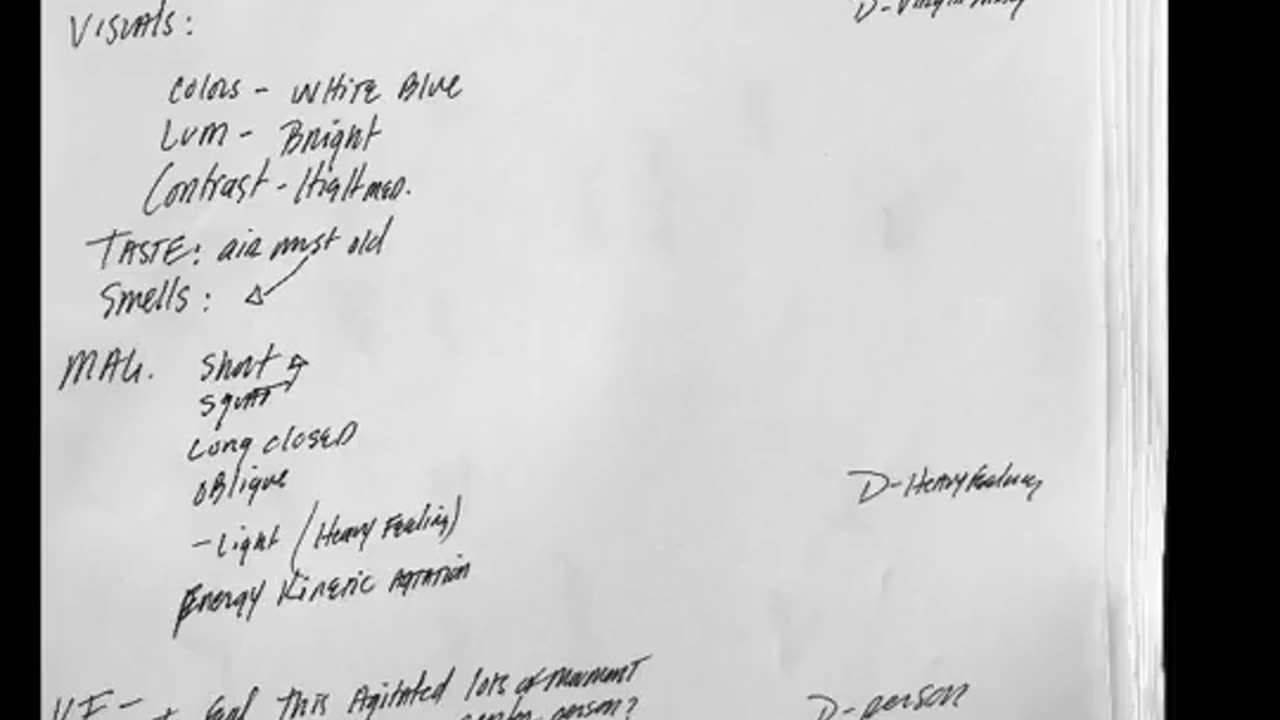 D-Virgin Mary
Visuals:
Colors - White Blue
Lum - Bright
Contrast - High med.
TASTE: air must old
Smells:
MAG. Short
squat
Long closed
oblique
-Light / (Heavy Feeling)
D-Heavy Feeling
Energy Kinetic Agtation
VF- I feel this Agitated lots of movement
person?
D-person